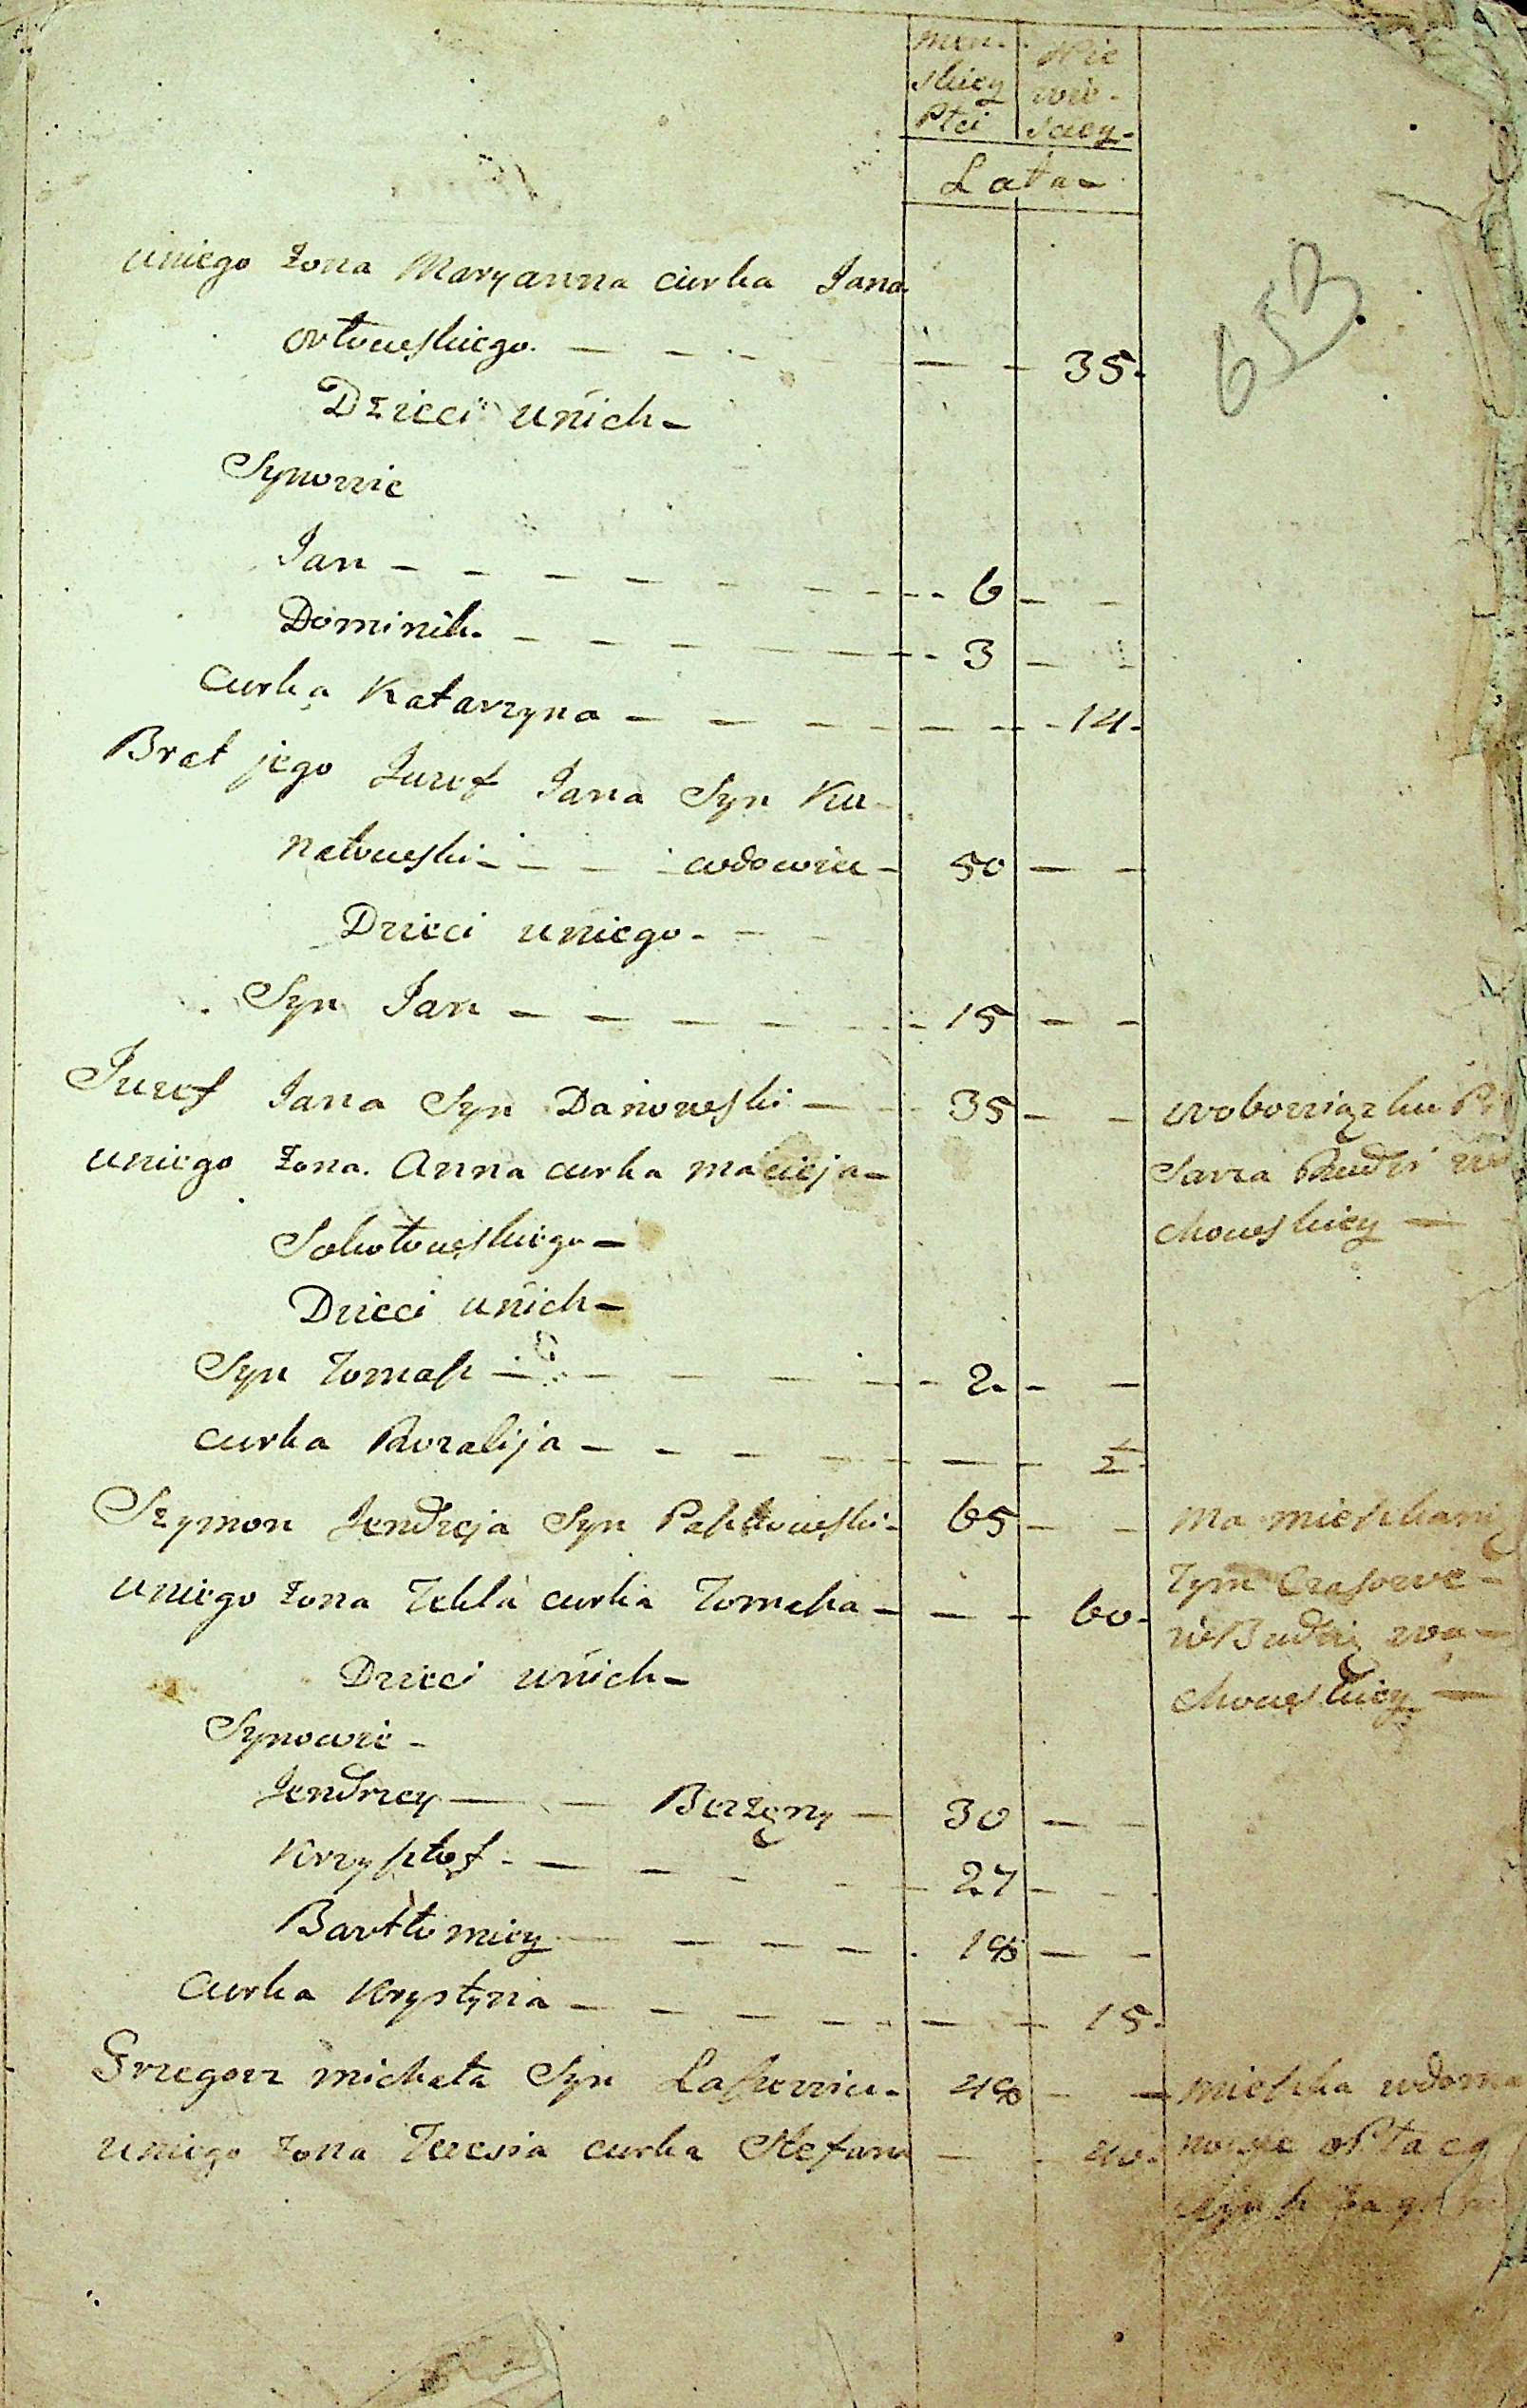 men-
skiey
Płci
Nie
wie-
sciey-
Lata-
uniego żona Maryanna curka Jana
Orłowskiego. — — — — — 35.
Dzieci unich-
Synowie
Jan - - - - - - - - 6 - -
Dominik. - - - - - - - 3 - -
Curka Katarzyna - - - - - - - 14-
Brat jego Juzef Jana Syn Ku-
natowski - - - wdowiec - 50 - -
Dzieci uniego - - -
Syn Jan - - - - - - 15 - -
Juzef Jana Syn Danowski - - 35 - -
uniego żona. Anna curka macieja-
Sokołowskiego-
Dzieci unich-
Syn Tomasz - - - - - - 2. - -
curka Rozalija - - - - - - - 1/2
Szymon Jendrzeja Syn - 65 - -
uniego żona Tekla curka Tomasza - - - 60.
Dzieci unich-
Synowie -
Jendrzey - - Bezżęny - 30 - -
Krzysztof - - - - - 27 - -
Bartłomiey - - - - - 18 - -
Curka Krystyna - - - - - - - 15.
Grzegorz michała Syn - 48 - -
uniego żona Teresia curka Stefana - - 40.
wobowiązku
Sarza
chowskiey -
Ma
Tym Czasowe-
wo-
chowskiey -
mieszka wdoma
653